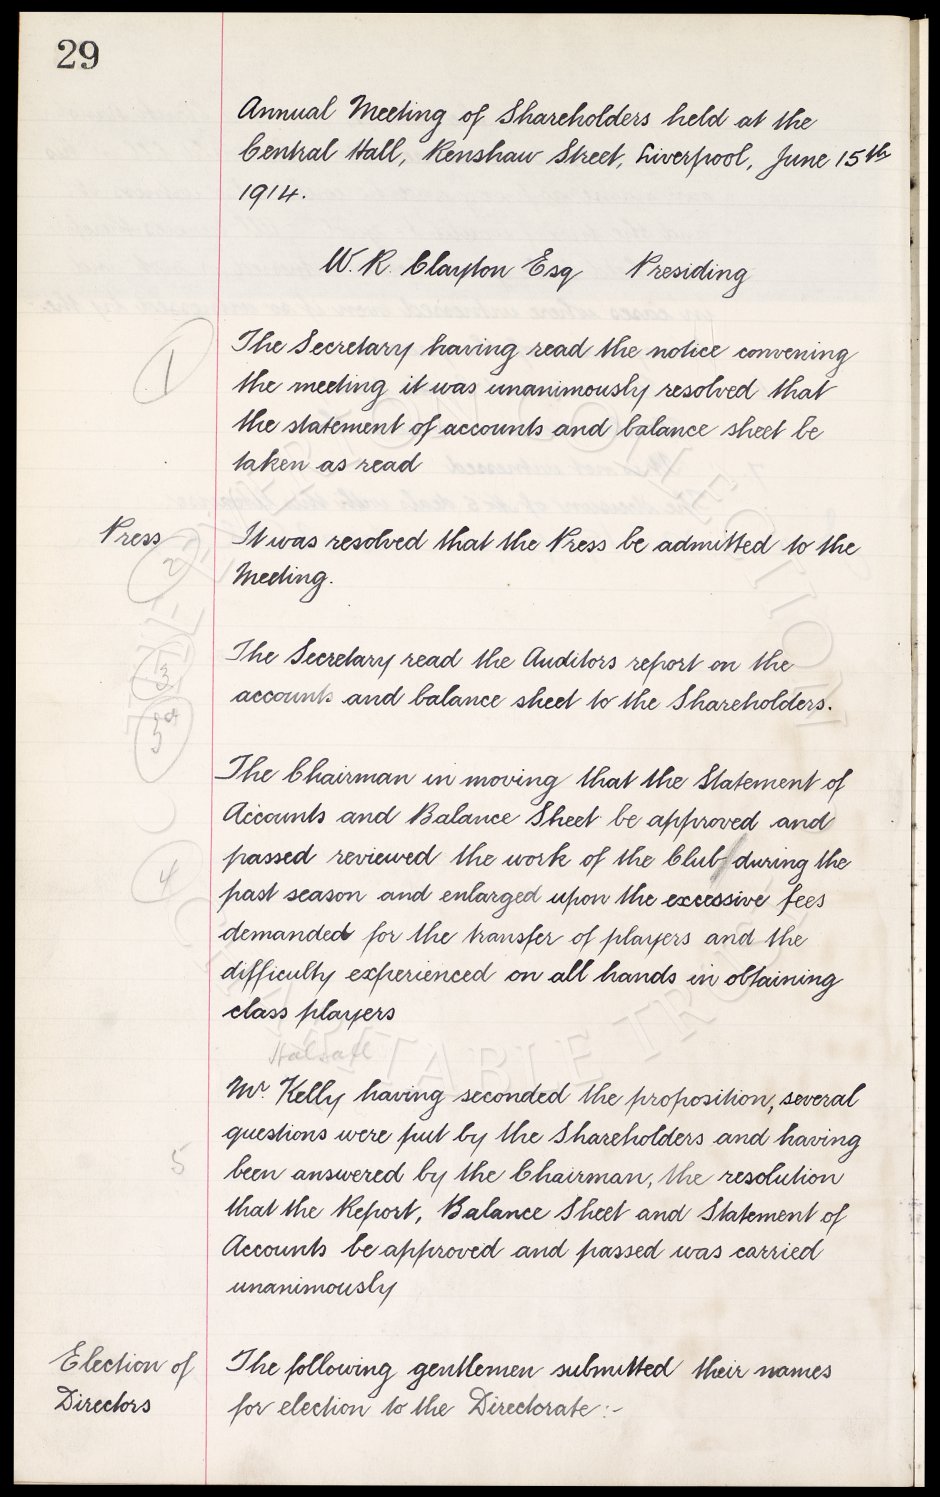 29
Annual Meeting of Shareholders held at the
Central Hall, Renshaw Street, Liverpool, June 15th
1914.
W. R. Clayton Esq Presiding
1
The Secretary having read the notice convening
the meeting it was unanimously resolved that
the statement of accounts and balance sheet be
taken as read
Press
2
It was resolved that the Press be admitted to the
Meeting.
3
The Secretary read the Auditors report on the
accounts and balance sheet to the Shareholders.
3a
The Chairman in moving that the Statement of
Accounts and Balance Sheet be approved and
passed reviewed the work of the Club during the
4
past season and enlarged upon the excessive fees
demanded for the transfer of players and the
difficulty experienced on all hands in obtaining
class players
Halsall
Mr. Kelly having seconded the proposition, several
questions were put by the Shareholders and having
5
been answered by the Chairman, the resolution
that the Report, Balance Sheet and Statement of
Accounts be approved and passed was carried
unanimously
Election of
Directors
The following gentlemen submitted their names
for election to the Directorate:-